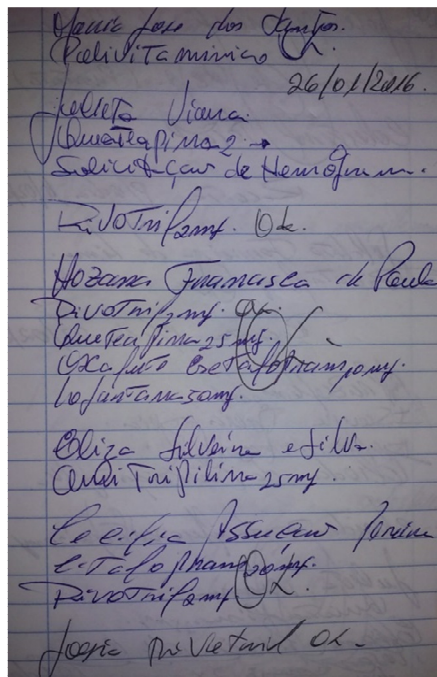 Maria Jose dos Santos.
Polivitaminico
26/01/2016.
Julieta Viana
Quetiapina 2
Solicitaçao de Hemograma.
Rivotril 2mg. Ok.
Hozana Francisca de Paula
Rivotril 2mg. Ok.
Quetiapina 25mg.
Escitalopram 10mg.
Losartana 50mg.
Eliza Silveira e Silva.
Amitriptilina 25mg.
Cecilia
Citalopram 20mg.
Rivotril 2mg. Ok.
Ok.